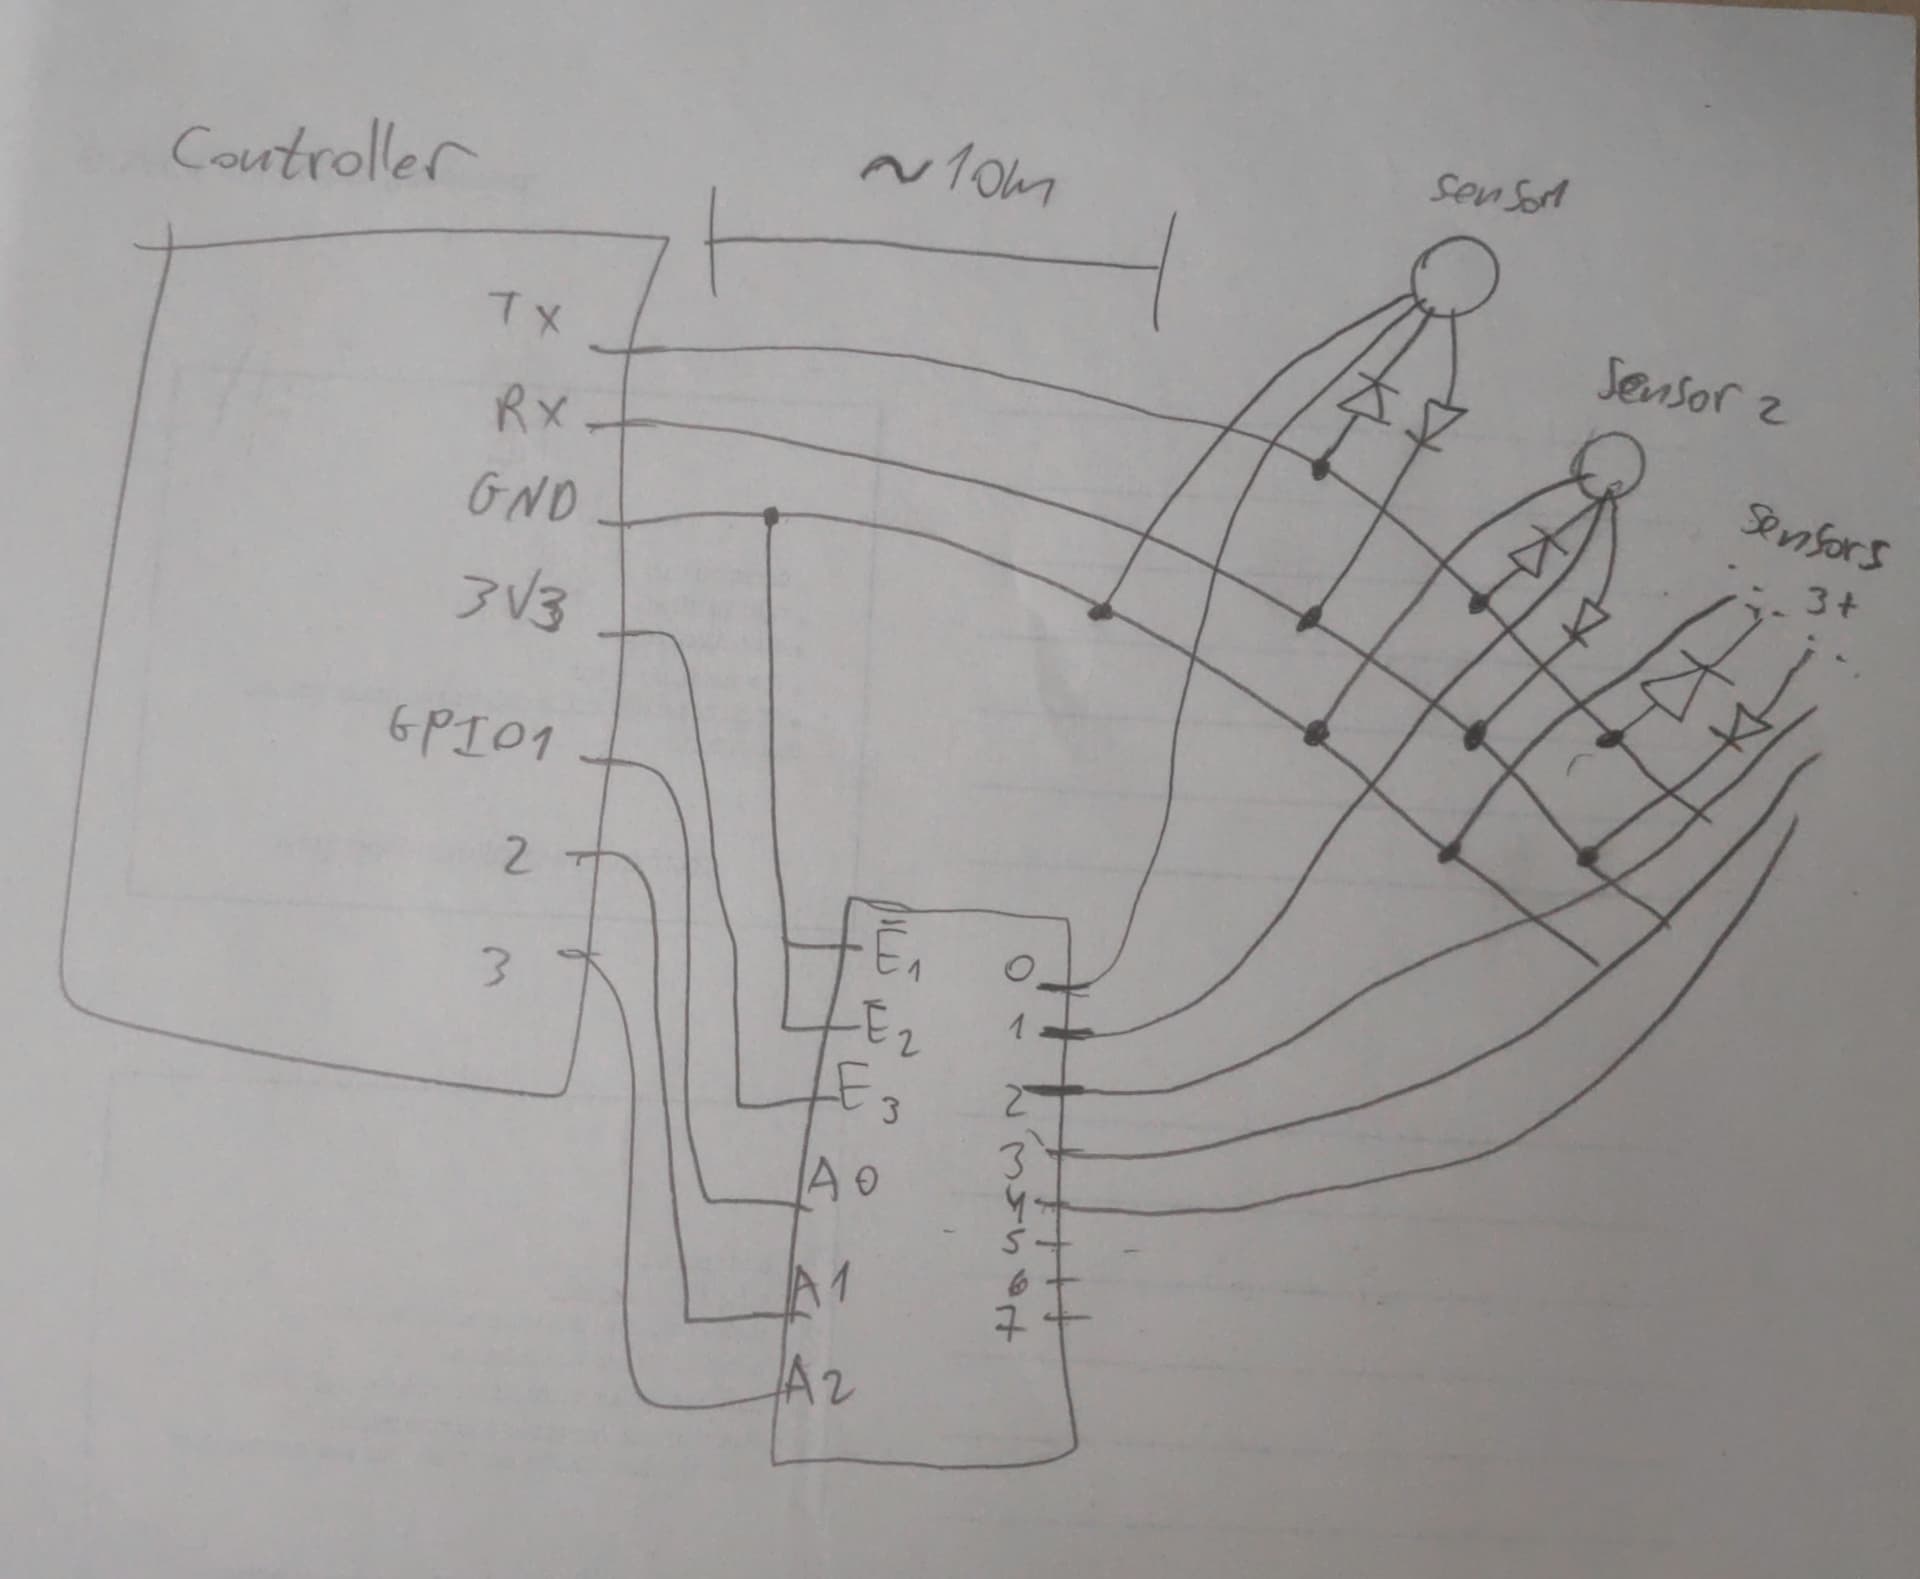 Controller
~10m
sensor1
Tx
Sensor 2
RX
GND
sensors
3+
3V3
GPIO1
2
3
E̅1
E̅2
E3
A0
A1
A2
0
1
2
3
4
5
6
7